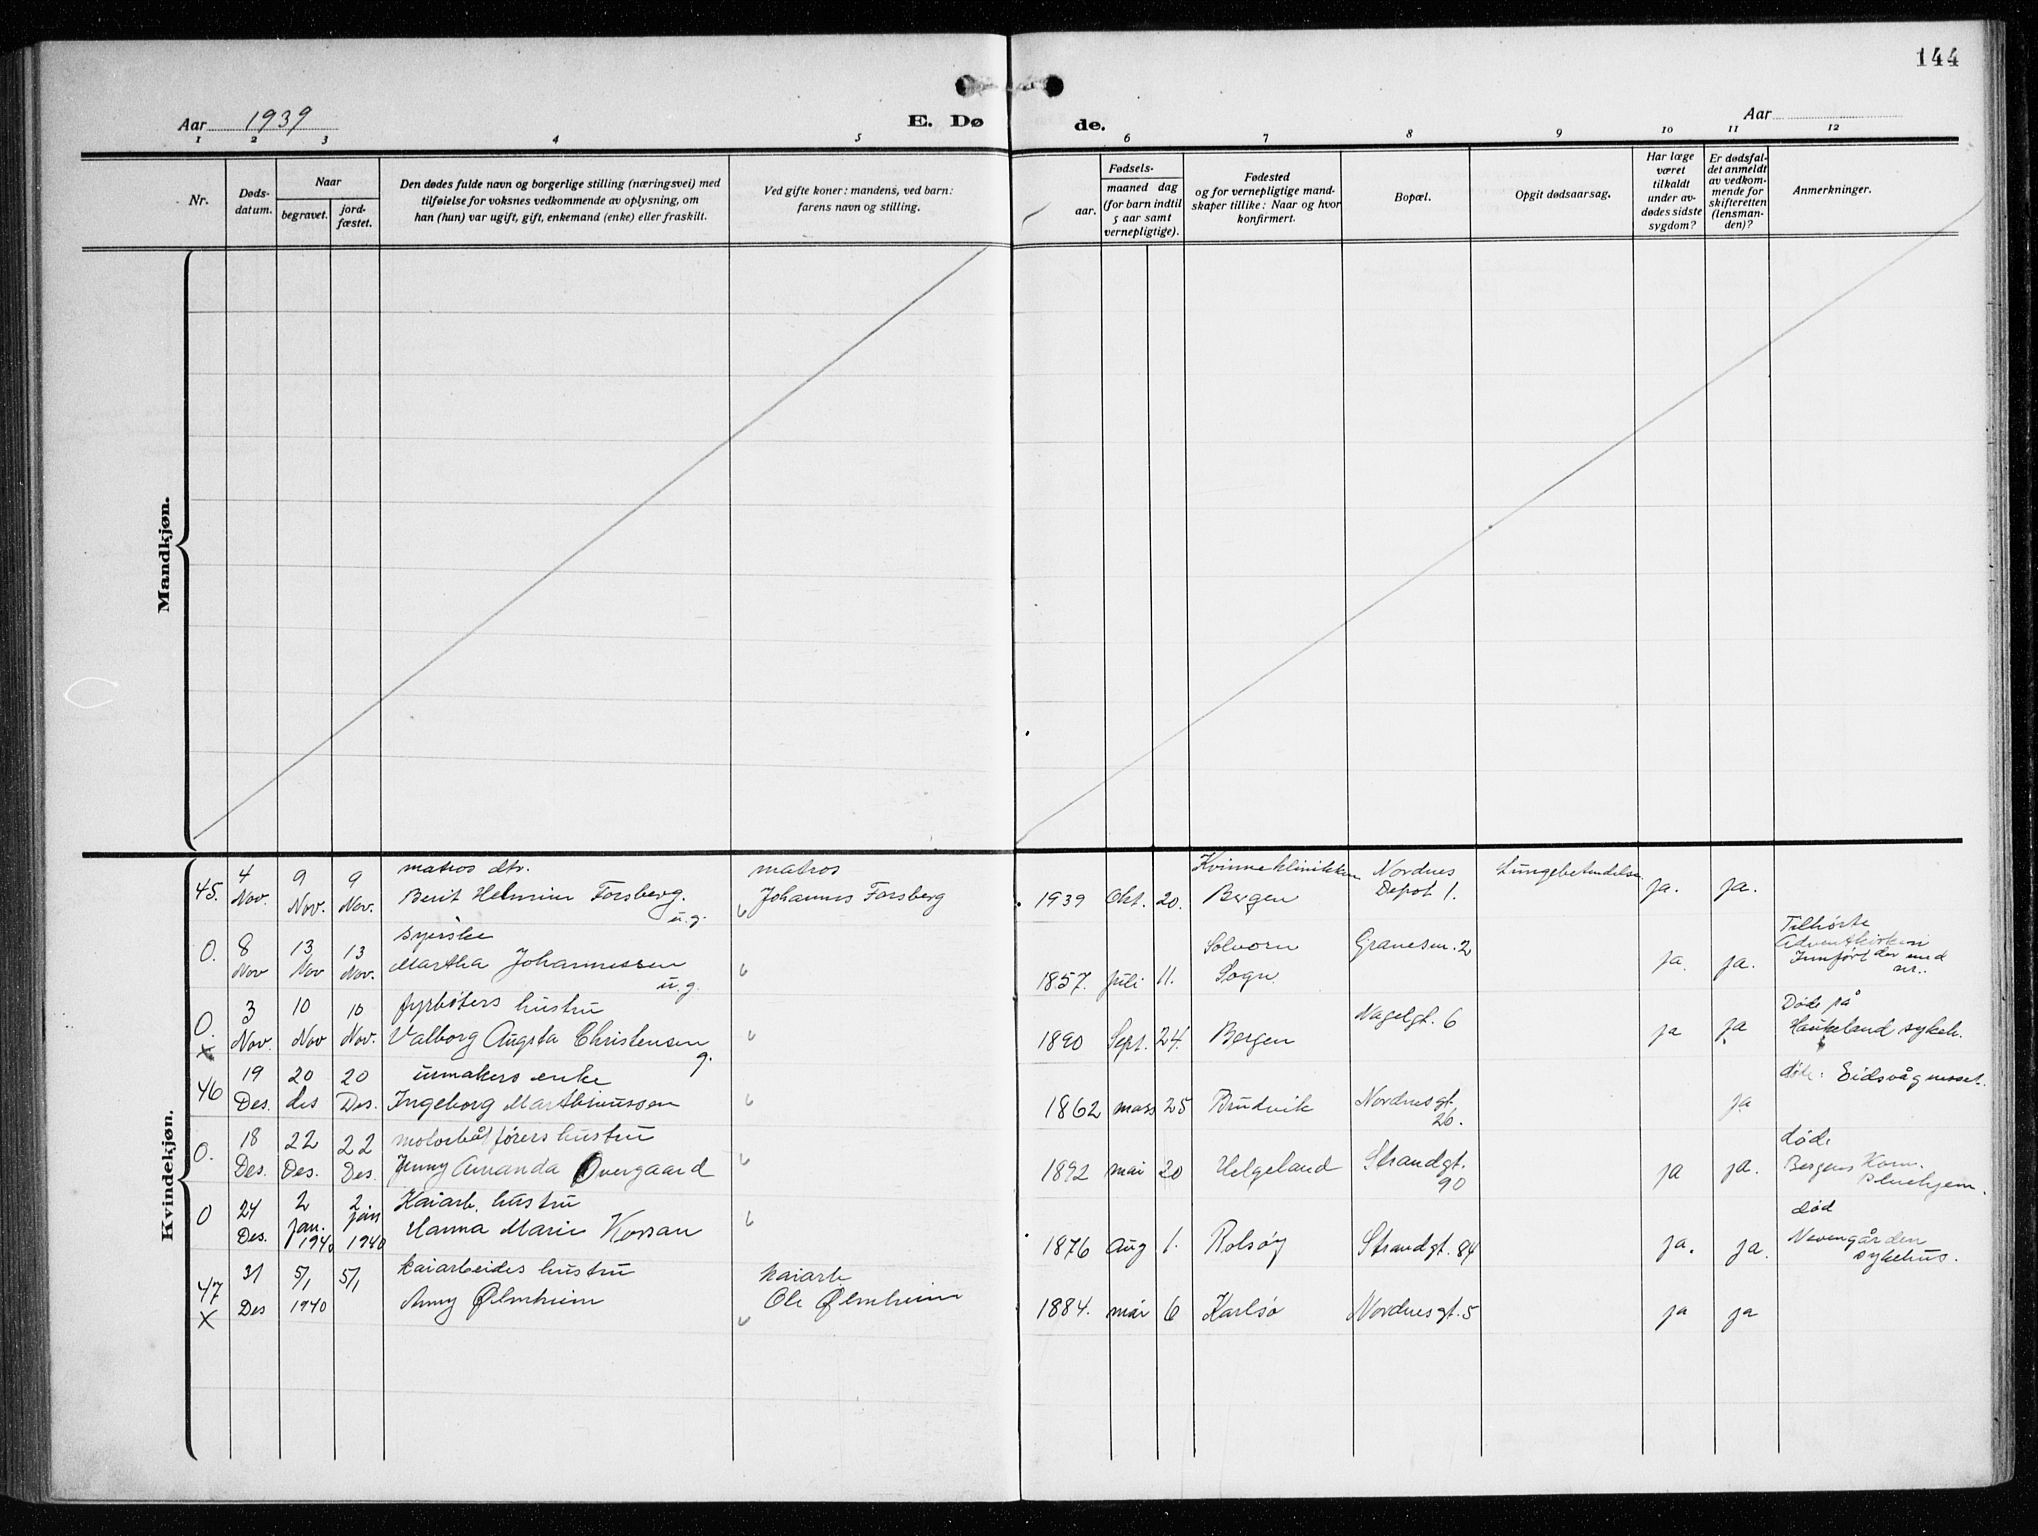 144
Aar 1939
E. Dø de.
Aar
1 2 3 4 5 6 7 8 9 10 11 12
Nr.
Døds-
datum.
Naar
begravet.
jord-
fæstet.
Den dødes fulde navn og borgerlige stilling (næringsvei) med
tilføielse for voksnes vedkommende av oplysning, om
han (hun) var ugift, gift, enkemand (enke) eller fraskilt.
Ved gifte koner: mandens, ved barn:
farens navn og stilling.
Fødsels-
aar.
maaned dag
(for barn indtil
5 aar samt
vernepligtige).
Fødested
og for vernepligtige mand-
skaper tillike: Naar og hvor
konfirmert.
Bopæl.
Opgit dødsaarsag.
Har læge
været
tilkaldt
under av-
dødes sidste
sygdom?
Er dødsfal-
det anmeldt
av vedkom-
mende for
skifteretten
(lensman-
den)?
Anmerkninger.
Mandkjøn.
Kvindekjøn.
4 9 9 matros dtr. matros Kvinneklinikken Nordnes Lungebetendelse
45. Nov. Nov. Nov. Berit Helmine Forsberg. Johannes Forsberg 1939 Okt. 20. Bergen Depot 1. ja. ja.
u.g.
8 13 13 syerske Solvorn Granesm. 2 Tilhørte
0. Nov Nov Nov. Martha Johannessen 1857. juli 11. Sogn ja. ja. Adventkirken
u.g. Innført der med
nr..
3 10 10 fyrbøters hustru Nagelgt. 6 Døde på
0. Nov. Nov Nov. Valborg Augsta Christensen 1890 Sept. 24. Bergen ja ja Haukeland sykeh.
x g.
19 20 20 urmakers enke døde: Eidsvågnesset.
46 Des. des Des. Ingeborg Marthinussen 1862 mars 25 Bruvik Nordnesgt. ja
26.
18 22 22 motorbåtførers hustru døde
0. Des. Des. Des. Jenny Amanda Overgaard 1892 mai 20 Helgeland Strandgt. ja ja. Bergens Kom.
90 Pleiehjem.
24 2 2 Kaiarb. hustru død
0 Des. jan. 1940 jan 1940 Hanna Marie 1876 Aug 1. Rolsøy Strandgt. 84 ja. ja.
sykehus.
31 5/1 5/1 kaiarbeides hustru kaiarb.
47 Des 1940 Anny Ølmheim Ole Ølmheim 1884. mai 6 Karlsø Nordnesgt. 5 ja ja
x